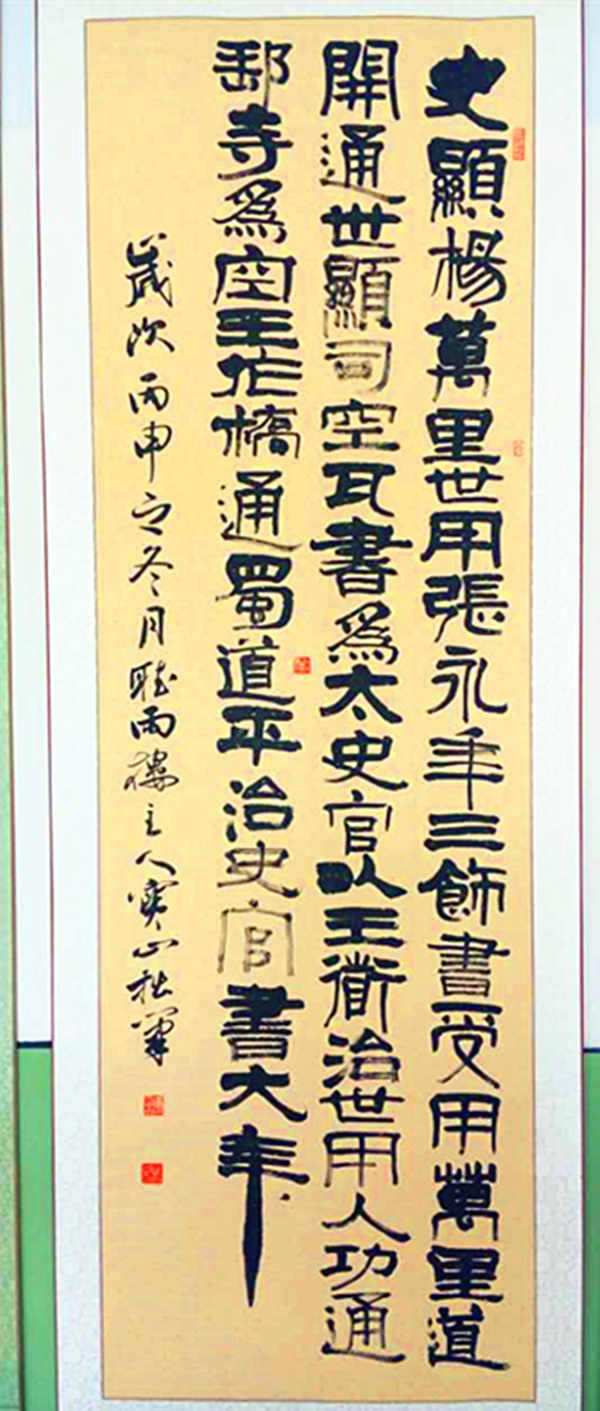 史顯楊萬里世用張永年三飾書受用萬里道
開通世顯司空瓦書爲太史官以王衛治世用人功通
寺爲空王作橋通蜀道平治史官書大年
歲次丙申之冬月聽雨樓主人寶山拙筆